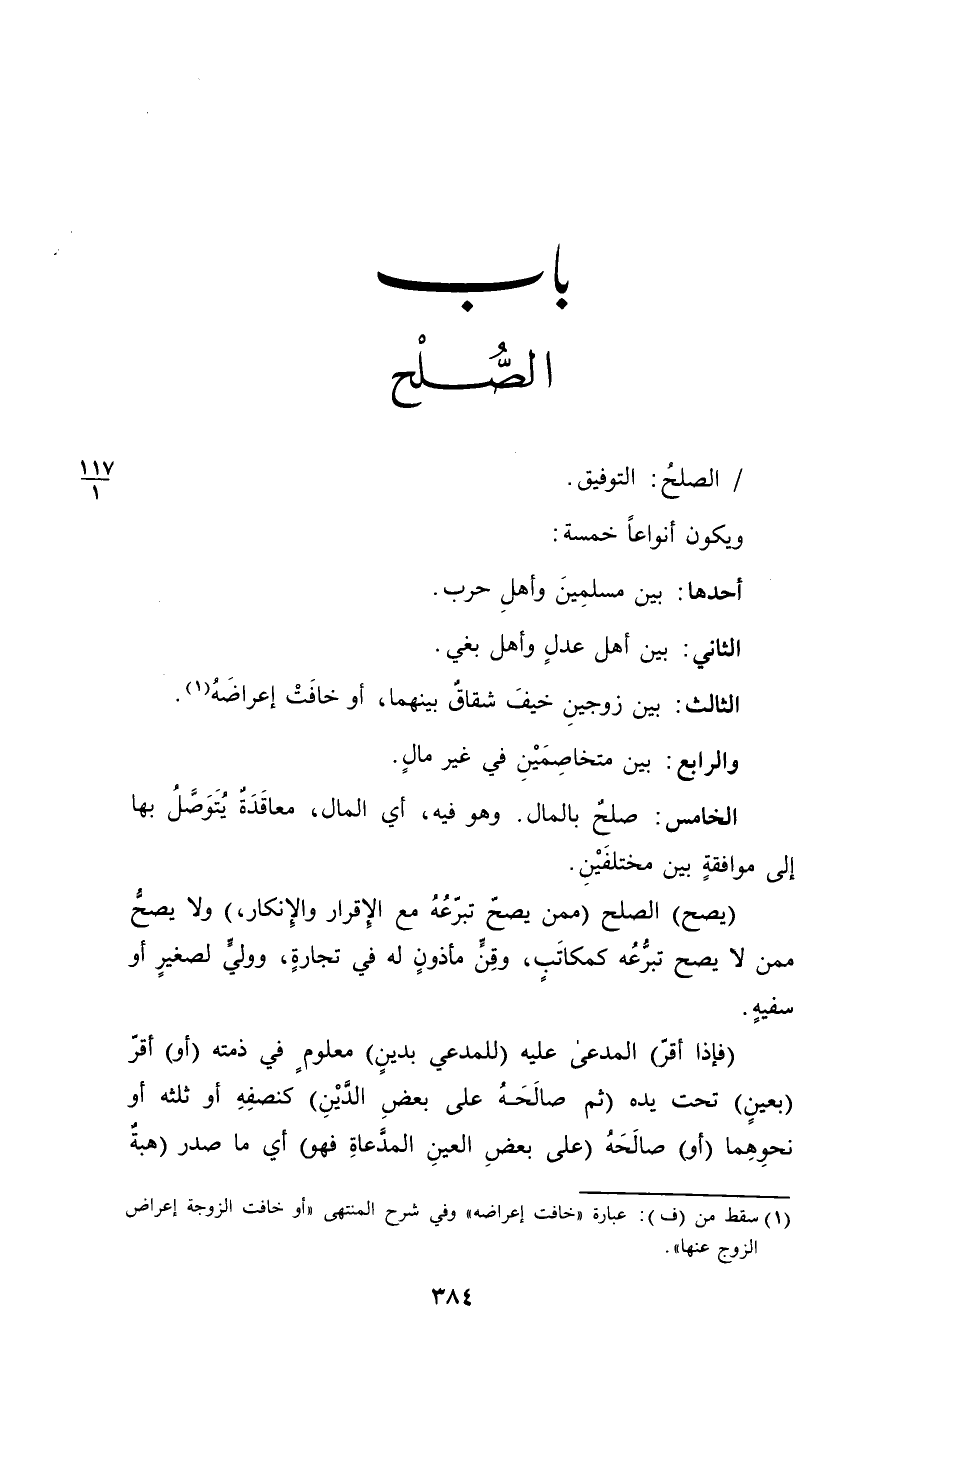 باب
الصُّلْح
١١٧
١
/ الصلحُ: التوفيق.
ويكون أنواعاً خمسة:
أحدها: بين مسلمِينَ وأهلِ حرب.
الثاني: بين أهل عدلٍ وأهل بغي.
الثالث: بين زوجينِ خيفَ شقاقٌ بينهما، أو خافَتْ إعراضَهُ(١).
والرابع: بين متخاصِمَيْنِ في غير مالٍ.
الخامس: صلحٌ بالمال. وهو فيه، أي المال، معاقَدَةٌ يُتَوَصَّلُ بها
إلى موافقةٍ بين مختلفَيْنِ.
(يصح) الصلح (ممن يصحّ تبرّعُهُ مع الإقرار والإنكار،) ولا يصحُّ
ممن لا يصح تبرُّعُه كمكاتَبٍ، وقِنٍّ مأذونٍ له في تجارةٍ، ووليٍّ لصغيرٍ أو
سفيهٍ.
(فإذا أقرّ) المدعىٰ عليه (للمدعي بدينٍ) معلومٍ في ذمته (أو) أقرّ
(بعينٍ) تحت يده (ثم صالَحَـهُ على بعضِ الدَّيْنِ) كنصفِهِ أو ثلثه أو
نحوِهِما (أو) صالَحَهُ (على بعضِ العينِ المدَّعاةِ فهو) أي ما صدر (هبةٌ
(١) سقط من (ف): عبارة «خافت إعراضه» وفي شرح المنتهى «أو خافت الزوجة إعراض
الزوج عنها».
٣٨٤